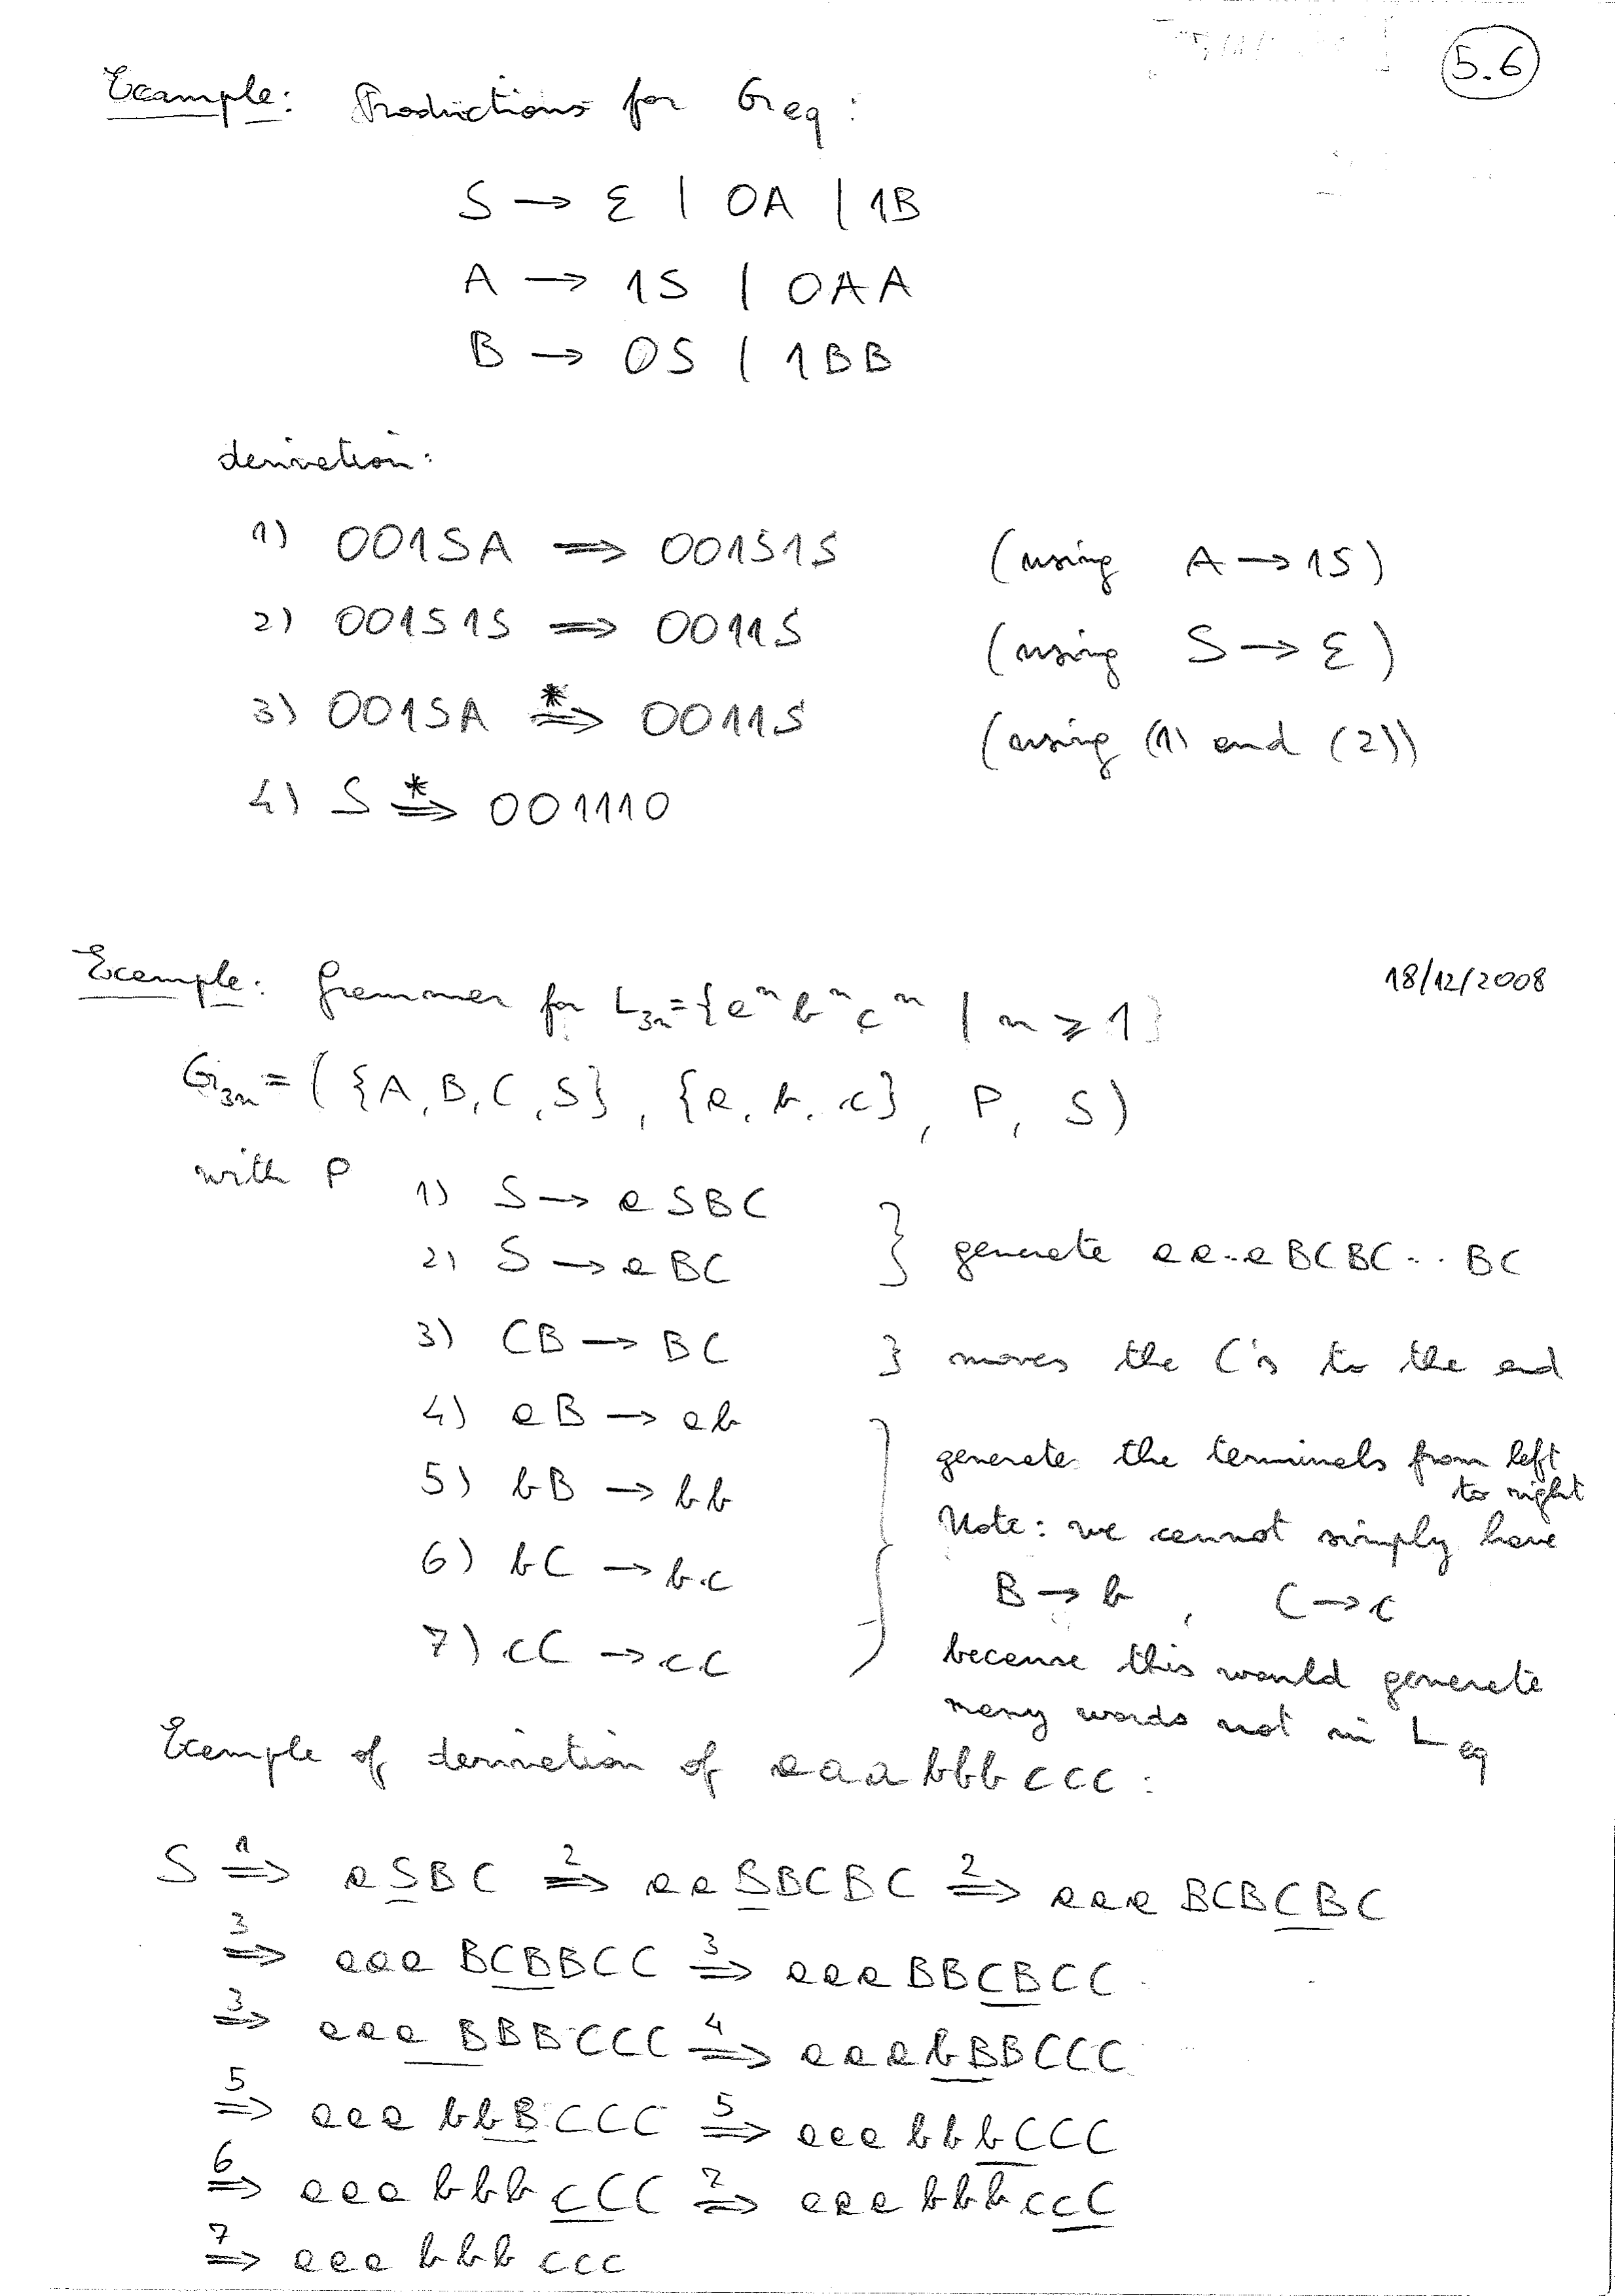 5.6
Example: Productions for Geq:
S → ε | 0A | 1B
A → 1S | 0AA
B → 0S | 1BB
derivation:
1) 001SA ⇒ 001S1S (using A → 1S)
2) 001S1S ⇒ 0011S (using S → ε)
3) 001SA ⇒* 0011S (using (1) and (2))
4) S ⇒* 001110
18/12/2008
Example: Grammar for L3n = {a^n b^n c^n | n ≥ 1}
G3n = ({A, B, C, S}, {a, b, c}, P, S)
with P 1) S → aSBC
2) S → aBC } generate aa..aBCBC... BC
3) CB → BC } moves the C's to the end
4) aB → ab
5) bB → bb
6) bC → bc
7) cC → cc
generate the terminals from left
to right
Note: we cannot simply have
B → b , C → c
because this would generate
many words not in Leq
Example of derivation of aaabbbccc:
S ⇒1 aSBC ⇒2 aaSBCBC ⇒2 aaaBCBCBC
⇒3 aaaBCBBCC ⇒3 aaaBBCBCC
⇒3 aaaBBBCCC ⇒4 aaabBBCCC
⇒5 aaabbBCCC ⇒5 aaabbbCCC
⇒6 aaabbbcCC ⇒7 aaabbbccC
⇒7 aaabbbccc